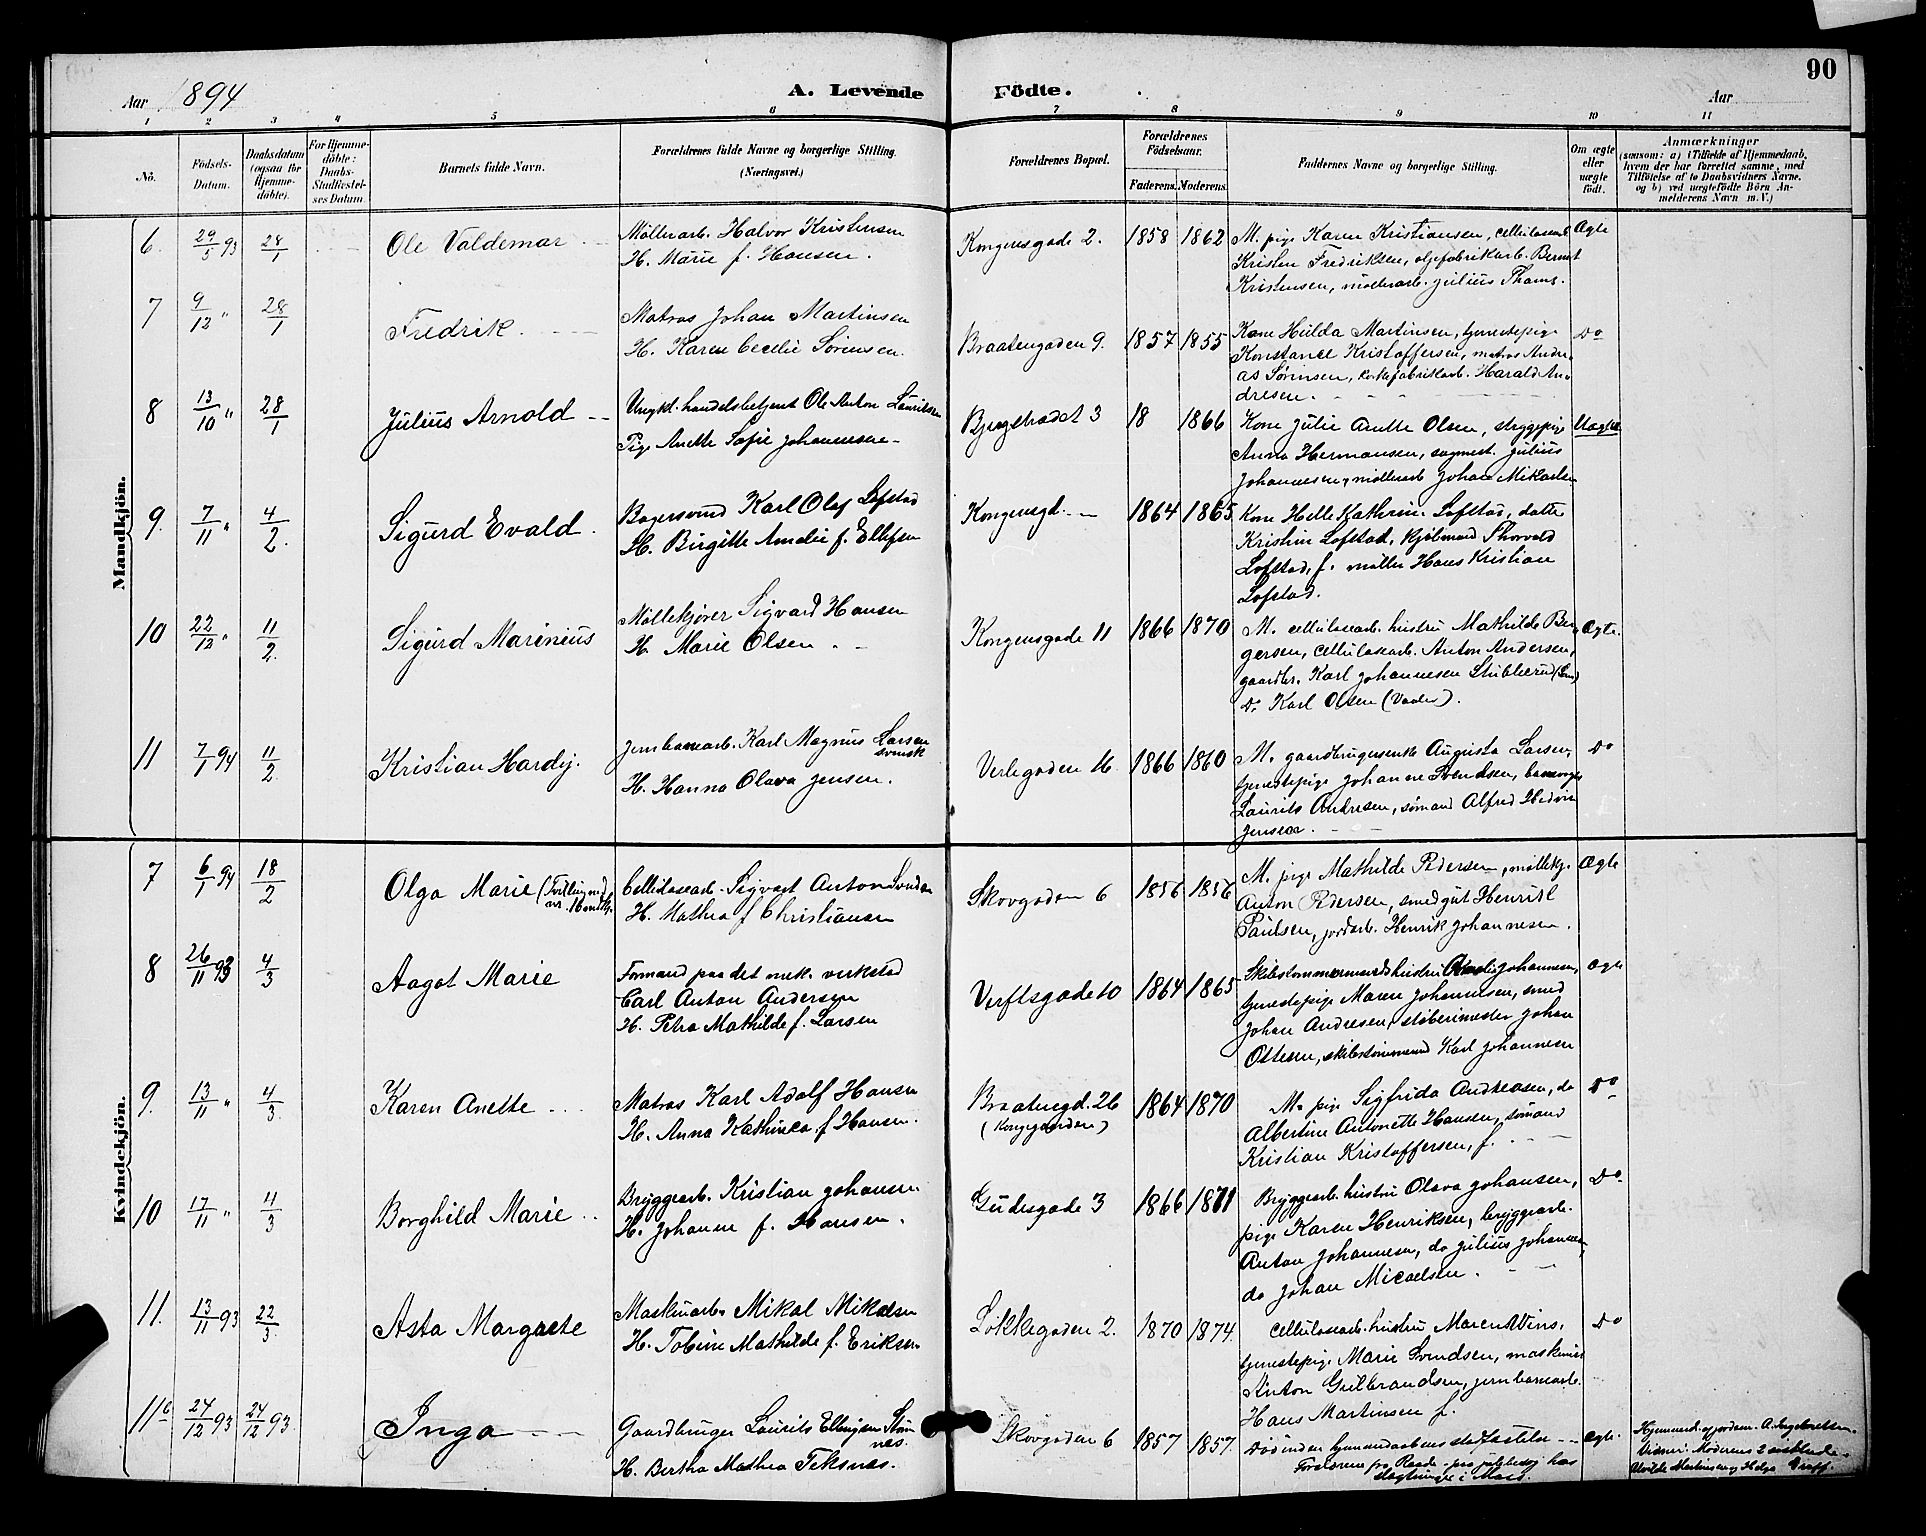 90
Aar 1894
A. Levende Födte.
Aar
1 2 3 4 5 6 7 8 9 10 11
No.
Födsels-Datum.
Daabsdatum (ogsaa for Hjemme-döbte).
For Hjemme-döbte: Daabs-Stadfæstel-ses Datum.
Barnets fulde Navn.
Forældrenes fulde Navne og borgerlige Stilling. (Næringsvei.)
Forældrenes Bopæl.
Forældrenes Födselsaar.
Faderens. Moderens.
Faddernes Navne og borgerlige Stilling.
Om ægte eller uægte födt.
Anmærkninger
(saasom: a) i Tilfælde af Hjemmedaab, hvem der har forrettet samme, med Tilföielse af to Daabsvidners Navne, og b) ved uægtefödte Börn, An-melderens Navn m. V.)
Mandkjön.
6. 29/5 93 28/1 Ole Valdemar
Møllerarb. Halvor Kristensen
H. Marie f. Hansen.
Kongensgade 2. 1858 1862
M. pige Karen Kristiansen, cellulosearb.
Kristen Fredriksen, oljefabrikarb. Bernt
Kristensen, møllerarb. Julius Thams.
Ægte
7 9/12 " 28/1 Fredrik
Matros Johan Martinsen
H. Karen Cecilie Sørensen.
Braatengaden 9. 1857 1855
Kone Hulda Martinsen, tjenestepige
Konstance Kristoffersen, matros Andre-
as Sørensen, korkefabrikarb. Harald An-
dresen.
Do
8 13/10 " 28/1 Julius Arnold
Ungkl. handelsbetjent Ole Anton Lauritsen
Pige Anette Sofie Johannesen
3 18 1866
Kone Julie Anette Olsen, strygepige
Anna Hermansen, sagmest. Julius
Johannesen, møllerarb Johan Mikaelsen
Uægte
9. 7/11 " 4/2. Sigurd Evald.
Bagersvend Karl Olaf Lofstad
H. Birgitte Amalie f. Ellefsen
Kongensgd. 1864 1865
Kone Helle Kathrine Lofstad, datter
Kristine Lofstad, kjøbmand Thorvald
Lofstad, f. møller Hans Kristian
Lofstad.
10 22/12 " 11/2. Sigurd Marinius
Møllekjører Sigvard Hansen
H. Marie Olsen
Kongensgade 11 1866 1870
M. cellulosearb. hustru Mathilde Ber-
gersen, cellulosearb. Anton Andersen,
gaardbr. Karl Johannesen
Do Karl Olsen (Vaaler).
Ægte.
11 7/1 94 11/2. Kristian Hardy.
Jernbanearb. Karl Magnus Larsen
svensk
H. Hanna Olava Jensen.
Verlegaden 16. 1866 1860
M. gaardbrugerenke Augusta Larsen,
tjenestepige Johanne Svendsen,
Laurits Andresen, sømand Alfred
Jensen.
Do
Kvindekjön.
7 6/1 94 18/2 Olga Marie (Tvilling med
Cellulosearb. Sigvart Anton Svendsen
H. Mathea f Christiansen
Skovgaden 6 1856 1856
M. pige Mathilde Pedersen, møllekj.
Anton Pedersen, smedgut Henrik
Paulsen, jordarb. Henrik Johannesen.
Ægte
8 26/11 93 4/3 Aagot Marie
Formand paa det mek. verksted
Carl Anton Andersen
H. Petra Mathilde f. Larsen
Verftsgade 10 1864 1865
Skibstømmermands hustru Amalie Johannesen,
tjenestepige Maren Johannesen, smed
Johan Andresen, støberimester Johan
Ottesen, skibstømmermand Karl Johannesen
Ægte
9. 13/11 " 4/3. Karen Anette
Matros Karl Adolf Hansen
H. Anna Kathinca f Hansen.
Braatengd. 26
(Kongegaarden)
1864 1870
M. pige Sigfrida Andreasen, do
Albertine Antonette Hansen, sømand
Kristian Kristoffersen, f.
Do
10 17/11 " 4/3 Borghild Marie
Bryggearb. Kristian Johansen
H. Johanne f. Hansen.
Gudesgade 3 1866 1871
Bryggearb. hustru Olava Johansen,
pige Karen Henriksen, bryggearb.
Anton Johannesen, do Julius Johannesen,
do Johan Micaelsen.
Do
11. 13/11 93 22/3. Asta Margrete
Maskinarb. Mikal Mikalsen
H. Tobine Mathilde f. Eriksen
Løkkegaden 2. 1870 1874.
Cellulosearb. hustru Maren Wins,
tjenestepige Marie Svendsen, maskinist
Anton Gulbrandsen, jernbanearb.
Hans Martinsen f.
Do
11b 24/12 93 24/12 93 Inga
Gaardbruger Laurits Ellingsen
H. Bertha Mathea Teksnes.
Skovgaden 6 1857 1857.
Død inden hjemmedaabens stadfæstelse
Forældrene fra Raade paa julebesøg hos
slægtninge i Moss.
Ægte.
Hjemmed. af jordem. A. Ingebretsen.
Vidner: Moderens 2 søskende